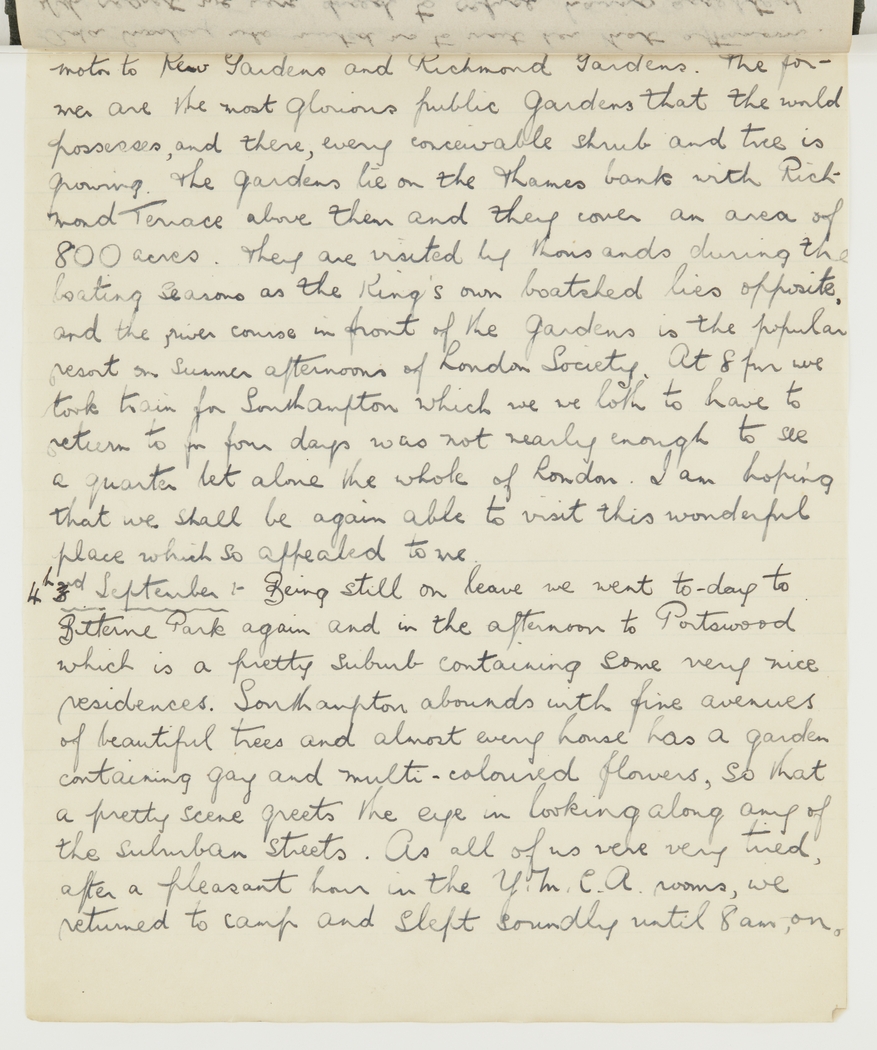 motor to Kew Gardens and Richmond Gardens. The for-
mer are the most glorious public Gardens that the world
possesses, and there, every conceivable shrub and tree is
growing. The gardens lie on the Thames bank with Rich-
mond Terrace above them and they cover an area of
800 acres. They are visited by thousands during the
boating seasons as the King's own boatshed lies opposite,
and the river course in front of the Gardens is the popular
resort on Summer afternoons of London Society. At 8 pm we
took train for Southampton which we we loth to have to
return to for four days was not nearly enough to see
a quarter let alone the whole of London. I am hoping
that we shall be again able to visit this wonderful
place which so appealed to me.
4th September :- Being still on leave we went to-day to
Bitterne Park again and in the afternoon to Portswood
which is a pretty suburb containing some very nice
residences. Southampton abounds with fine avenues
of beautiful trees and almost every house has a garden
containing gay and multi-coloured flowers, so that
a pretty scene greets the eye in looking along any of
the suburban streets. As all of us were very tired,
after a pleasant hour in the Y.M.C.A. rooms, we
returned to camp and slept soundly until 8 am, on